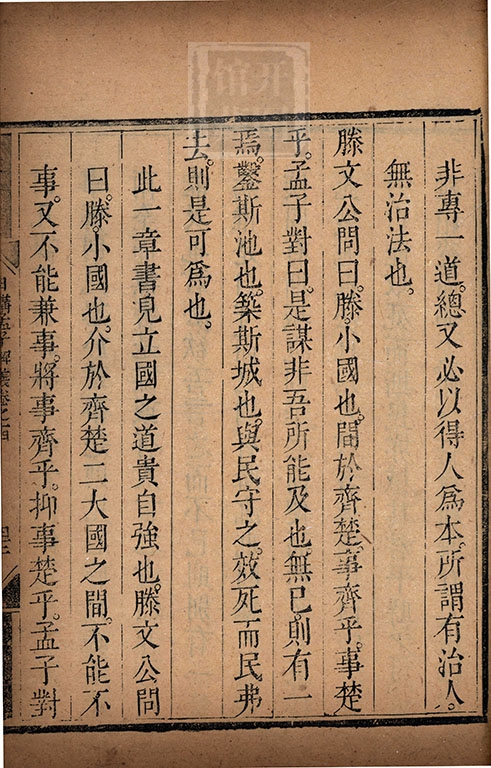 非專一道。總又必以得人為本。所謂有治人。
無治法也。
滕文公問曰。滕小國也。間於齊楚。事齊乎。事楚
乎。孟子對曰。是謀非吾所能及也。無已。則有一
焉。鑿斯池也。築斯城也。與民守之。效死而民弗
去。則是可爲也。
此一章書。見立國之道貴自強也。滕文公問
曰。滕小國也。介於齊楚二大國之間。不能不
事。又不能兼事。將事齊乎。抑事楚乎。孟子對
日講孟子解義卷之四